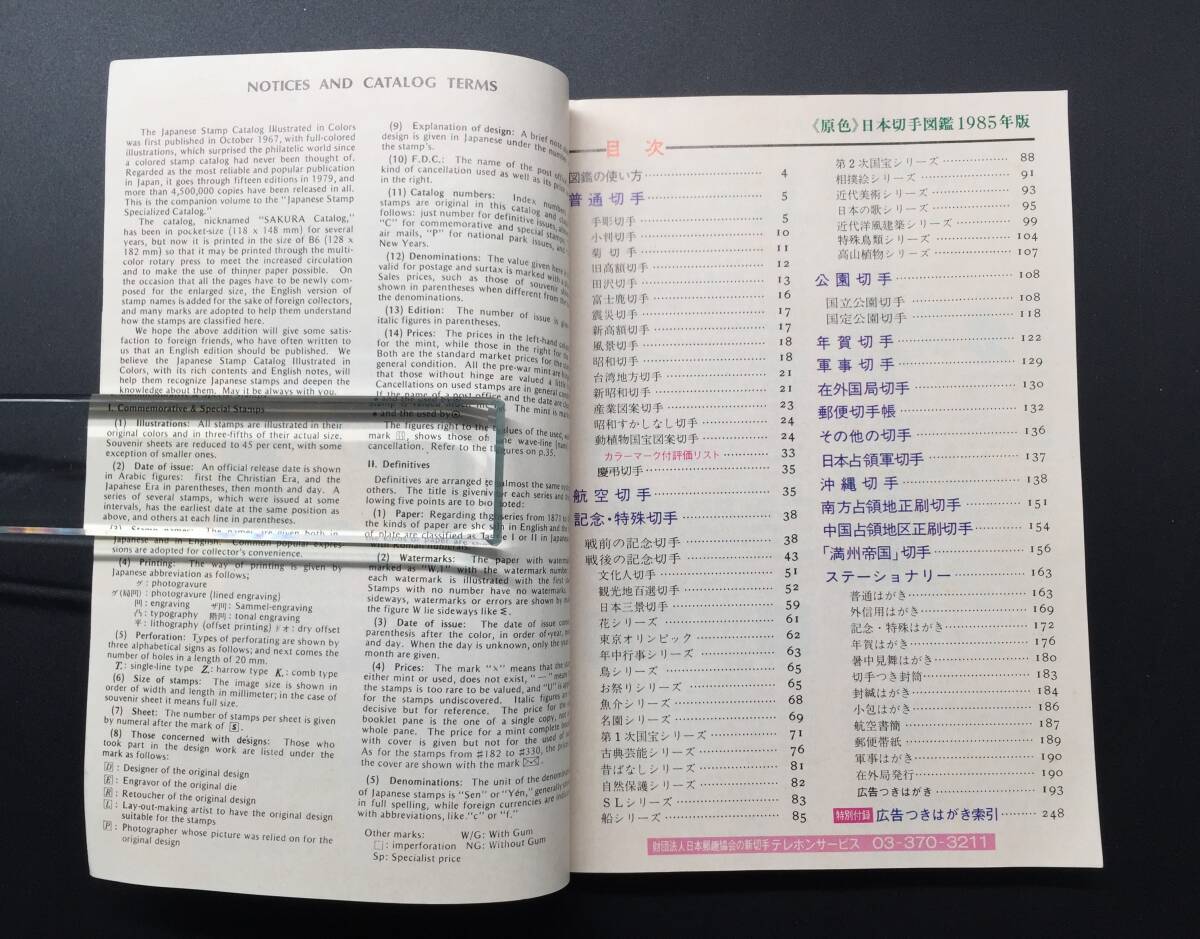 NOTICES AND CATALOG TERMS
The Japanese Stamp Catalog Illustrated in Colors
was first published in October 1967, with full-colored
illustrations, which surprised the philatelic world since
a colored stamp catalog had never been thought of.
Regarded as the most reliable and popular publication
in Japan, it goes through fifteen editions in 1979, and
more than 4,500,000 copies have been released in all.
This is the companion volume to the "Japanese Stamp
Specialized Catalog."
The catalog, nicknamed "SAKURA Catalog,"
has been in pocket-size (118 x 148 mm) for several
years, but now it is printed in the size of B6 (128 x
182 mm) so that it may be printed through the multi-
color rotary press to meet the increased circulation
and to make the use of thinner paper possible. On
the occasion that all the pages have to be newly com-
posed for the enlarged size, the English version of
stamp names is added for the sake of foreign collectors,
and many marks are adopted to help them understand
how the stamps are classified here.
We hope the above addition will give some satis-
faction to foreign friends, who have often written to
us that an English edition should be published. We
believe the Japanese Stamp Catalog Illustrated in
Colors, with its rich contents and English notes, will
help them recognize Japanese stamps and deepen the
knowledge about them. May it be always with you.
I. Commemorative & Special Stamps
(1) Illustrations: All stamps are illustrated in their
original colors and in three-fifths of their actual size.
Souvenir sheets are reduced to 45 per cent, with some
exception of smaller ones.
(2) Date of issue: An official release date is shown
in Arabic figures: first the Christian Era, and the
Japanese Era in parentheses, then month and day. A
series of several stamps, which were issued at some
intervals, has the earliest date at the same position as
above, and others at each line in parentheses.
(3) Stamp names: The names are given both in
Japanese and in English. Common popular expres-
sions are adopted for collector's convenience.
(4) Printing: The way of printing is given by
Japanese abbreviation as follows;
グ: photogravure
グ(局凹): photogravure (lined engraving)
凹: engraving ザ凹: Sammel-engraving
凸: typography 階凹: tonal engraving
平: lithography (offset printing) ドオ: dry offset
(5) Perforation: Types of perforating are shown by
three alphabetical signs as follows; and next comes the
number of holes in a length of 20 mm.
L: single-line type Z: harrow type K: comb type
(6) Size of stamps: The image size is shown in
order of width and length in millimeter; in the case of
souvenir sheet it means full size.
(7) Sheet: The number of stamps per sheet is given
by numeral after the mark of S.
(8) Those concerned with designs: Those who
took part in the design work are listed under the
mark as follows:
D: Designer of the original design
E: Engravor of the original die
R: Retoucher of the original design
L: Lay-out-making artist to have the original design
suitable for the stamps
P: Photographer whose picture was relied on for the
original design
(9) Explanation of design: A brief note
design is given in Japanese under the
the stamp's.
(10) F.D.C.: The name of the post
kind of cancellation used as well as its price
in the right.
(11) Catalog numbers: Index numbers
stamps are original in this catalog and
follows: just number for definitive issues,
"C" for commemorative and special stamps,
air mails, "P" for national park issues, and
New Years.
(12) Denominations: The value given here is
valid for postage and surtax is marked with
Sales prices, such as those of souvenir
shown in parentheses when different from the
the denominations.
(13) Edition: The number of issue is
italic figures in parentheses.
(14) Prices: The prices in the left-hand
for the mint, while those in the right for the
Both are the standard market prices for the
general condition. All the pre-war mint are
that those without hinge are valued a little
Cancellations on used stamps are in general
If the name of a post office and the date are
and the used by
The figures right to the values of the used, with
mark, shows those of the wave-line
cancellation. Refer to the figures on p.35.
II. Definitives
Definitives are arranged almost the same
others. The title is given for each series and
lowing five points are to be noted:
(1) Paper: Regarding the series from 1871 to
the kinds of paper are shown in English and the
of plate are classified as Type I or II in Japanese
(2) Watermarks: The paper with watermark
marked as "W.1" with the watermark number
each watermark is illustrated with the first
Stamps with no number have no watermarks.
sideways, watermarks or errors are shown by
the figure W lie sideways like
(3) Date of issue: The date of issue
parenthesis after the color, in order of year,
and day. When the day is unknown, only the year
month are given.
(4) Prices: The mark "×" means that the
either mint or used, does not exist, "—" means
the stamps is too rare to be valued, and "U" is
for the stamps undiscovered. Italic figures are
decisive but for reference. The price for the
booklet pane is the one of a single copy, not
whole pane. The price for a mint complete
with cover is given but not for the used
As for the stamps from #182 to #330, the price
the cover are shown with the mark
(5) Denominations: The unit of the denominations
of Japanese stamps is "Sen" or "Yen," generally
in full spelling, while foreign currencies are indicated
with abbreviations, like "c" or "f."
Other marks: W/G: With Gum
: imperforation NG: Without Gum
Sp: Specialist price
《原色》日本切手図鑑1985年版
目次
図鑑の使い方 4
普通切手 5
手彫切手 5
小判切手 10
菊切手 11
旧高額切手 12
田沢切手 13
富士鹿切手 16
震災切手 17
新高額切手 17
風景切手 18
昭和切手 18
台湾地方切手 21
新昭和切手 21
産業図案切手 23
昭和すかしなし切手 24
動植物国宝図案切手 24
カラーマーク付評価リスト 33
慶弔切手 35
航空切手 35
記念・特殊切手 38
戦前の記念切手 38
戦後の記念切手 43
文化人切手 51
観光地百選切手 52
日本三景切手 59
花シリーズ 61
東京オリンピック 62
年中行事シリーズ 63
鳥シリーズ 65
お祭りシリーズ 65
魚介シリーズ 68
名園シリーズ 69
第1次国宝シリーズ 71
古典芸能シリーズ 76
昔ばなしシリーズ 81
自然保護シリーズ 82
SLシリーズ 83
船シリーズ 85
第2次国宝シリーズ 88
相撲絵シリーズ 91
近代美術シリーズ 93
日本の歌シリーズ 95
近代洋風建築シリーズ 99
特殊鳥類シリーズ 104
高山植物シリーズ 107
公園切手 108
国立公園切手 108
国定公園切手 118
年賀切手 122
軍事切手 129
在外国局切手 130
郵便切手帳 132
その他の切手 136
日本占領軍切手 137
沖縄切手 138
南方占領地正刷切手 151
中国占領地区正刷切手 154
「満州帝国」切手 156
ステーショナリー 163
普通はがき 163
外信用はがき 169
記念・特殊はがき 172
年賀はがき 176
暑中見舞はがき 180
切手つき封筒 183
封緘はがき 184
小包はがき 186
航空書簡 187
郵便帯紙 189
軍事はがき 190
在外局発行 190
広告つきはがき 193
特別付録 広告つきはがき索引 248
財団法人日本郵趣協会の新切手テレホンサービス 03-370-3211